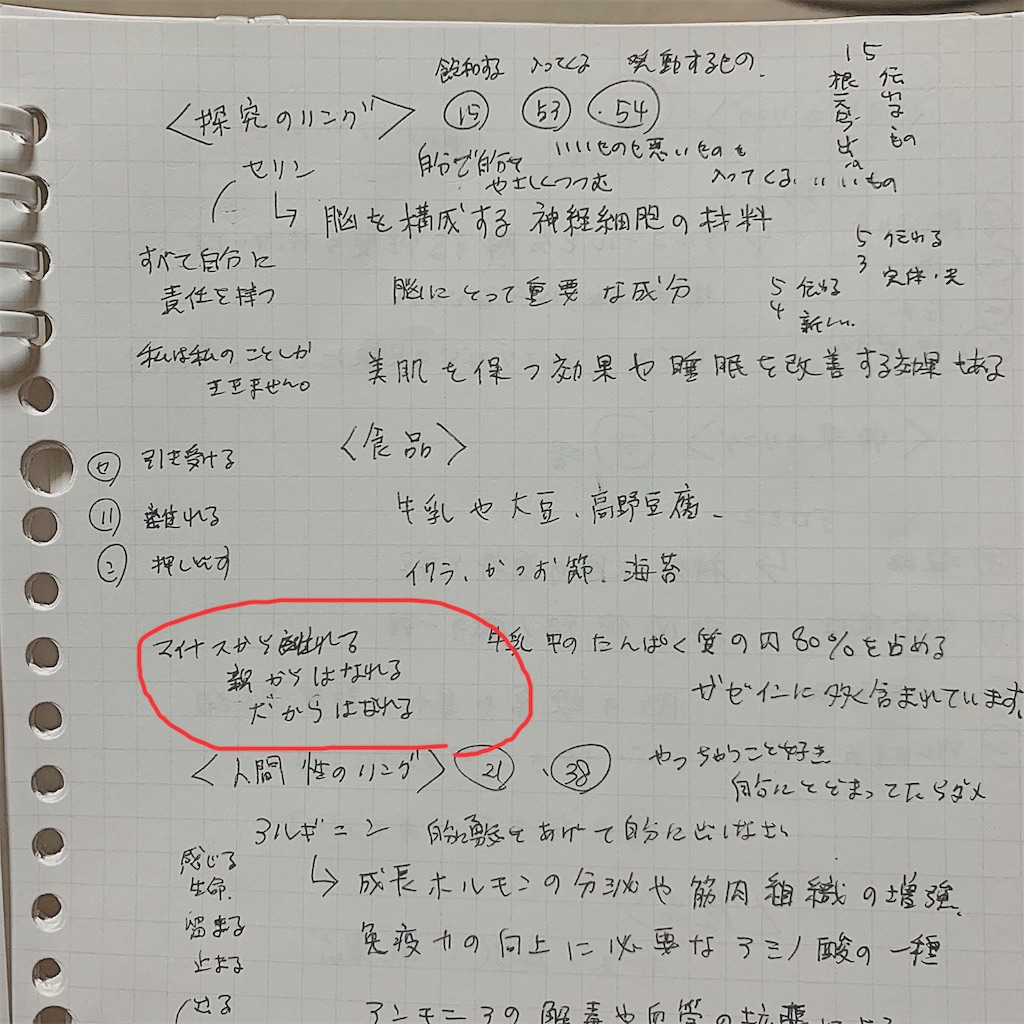 飽和する 入ってくる 発動するもの.
<探究のリング> 15 53 .54
15
伝わるもの
根
出
いいもの
セリン
自分で自分を
やさしくつつむ
いいものも悪いものも
入ってくる.
↳ 脳を構成する神経細胞の材料
すべて自分に
責任を持つ
5 伝わる
3 実体・実
脳にとって重要な成分
5 伝わる
4 新しい.
私は私のことしか
できません。
美肌を保つ効果や睡眠を改善する効果もある
<食品>
セ 引き受ける
リ 離れる
ン 押し出す
牛乳や大豆、高野豆腐、
イクラ、かつお節、海苔
マイナスから離れる
親からはなれる
だからはなれる
牛乳中のたんぱく質の内80%を占める
ガゼインに多く含まれています。
<人間性のリング> 21 . 38
やっちゃうこと好き
自分にとどまってたらダメ
アルギニン
自分に勇気をあげて自分に出しなさい
↳ 成長ホルモンの分泌や筋肉組織の増強、
感じる
生命.
留まる
止まる
出る
免疫力の向上に必要なアミノ酸の一種
アンモニアの解毒や血管の拡張による